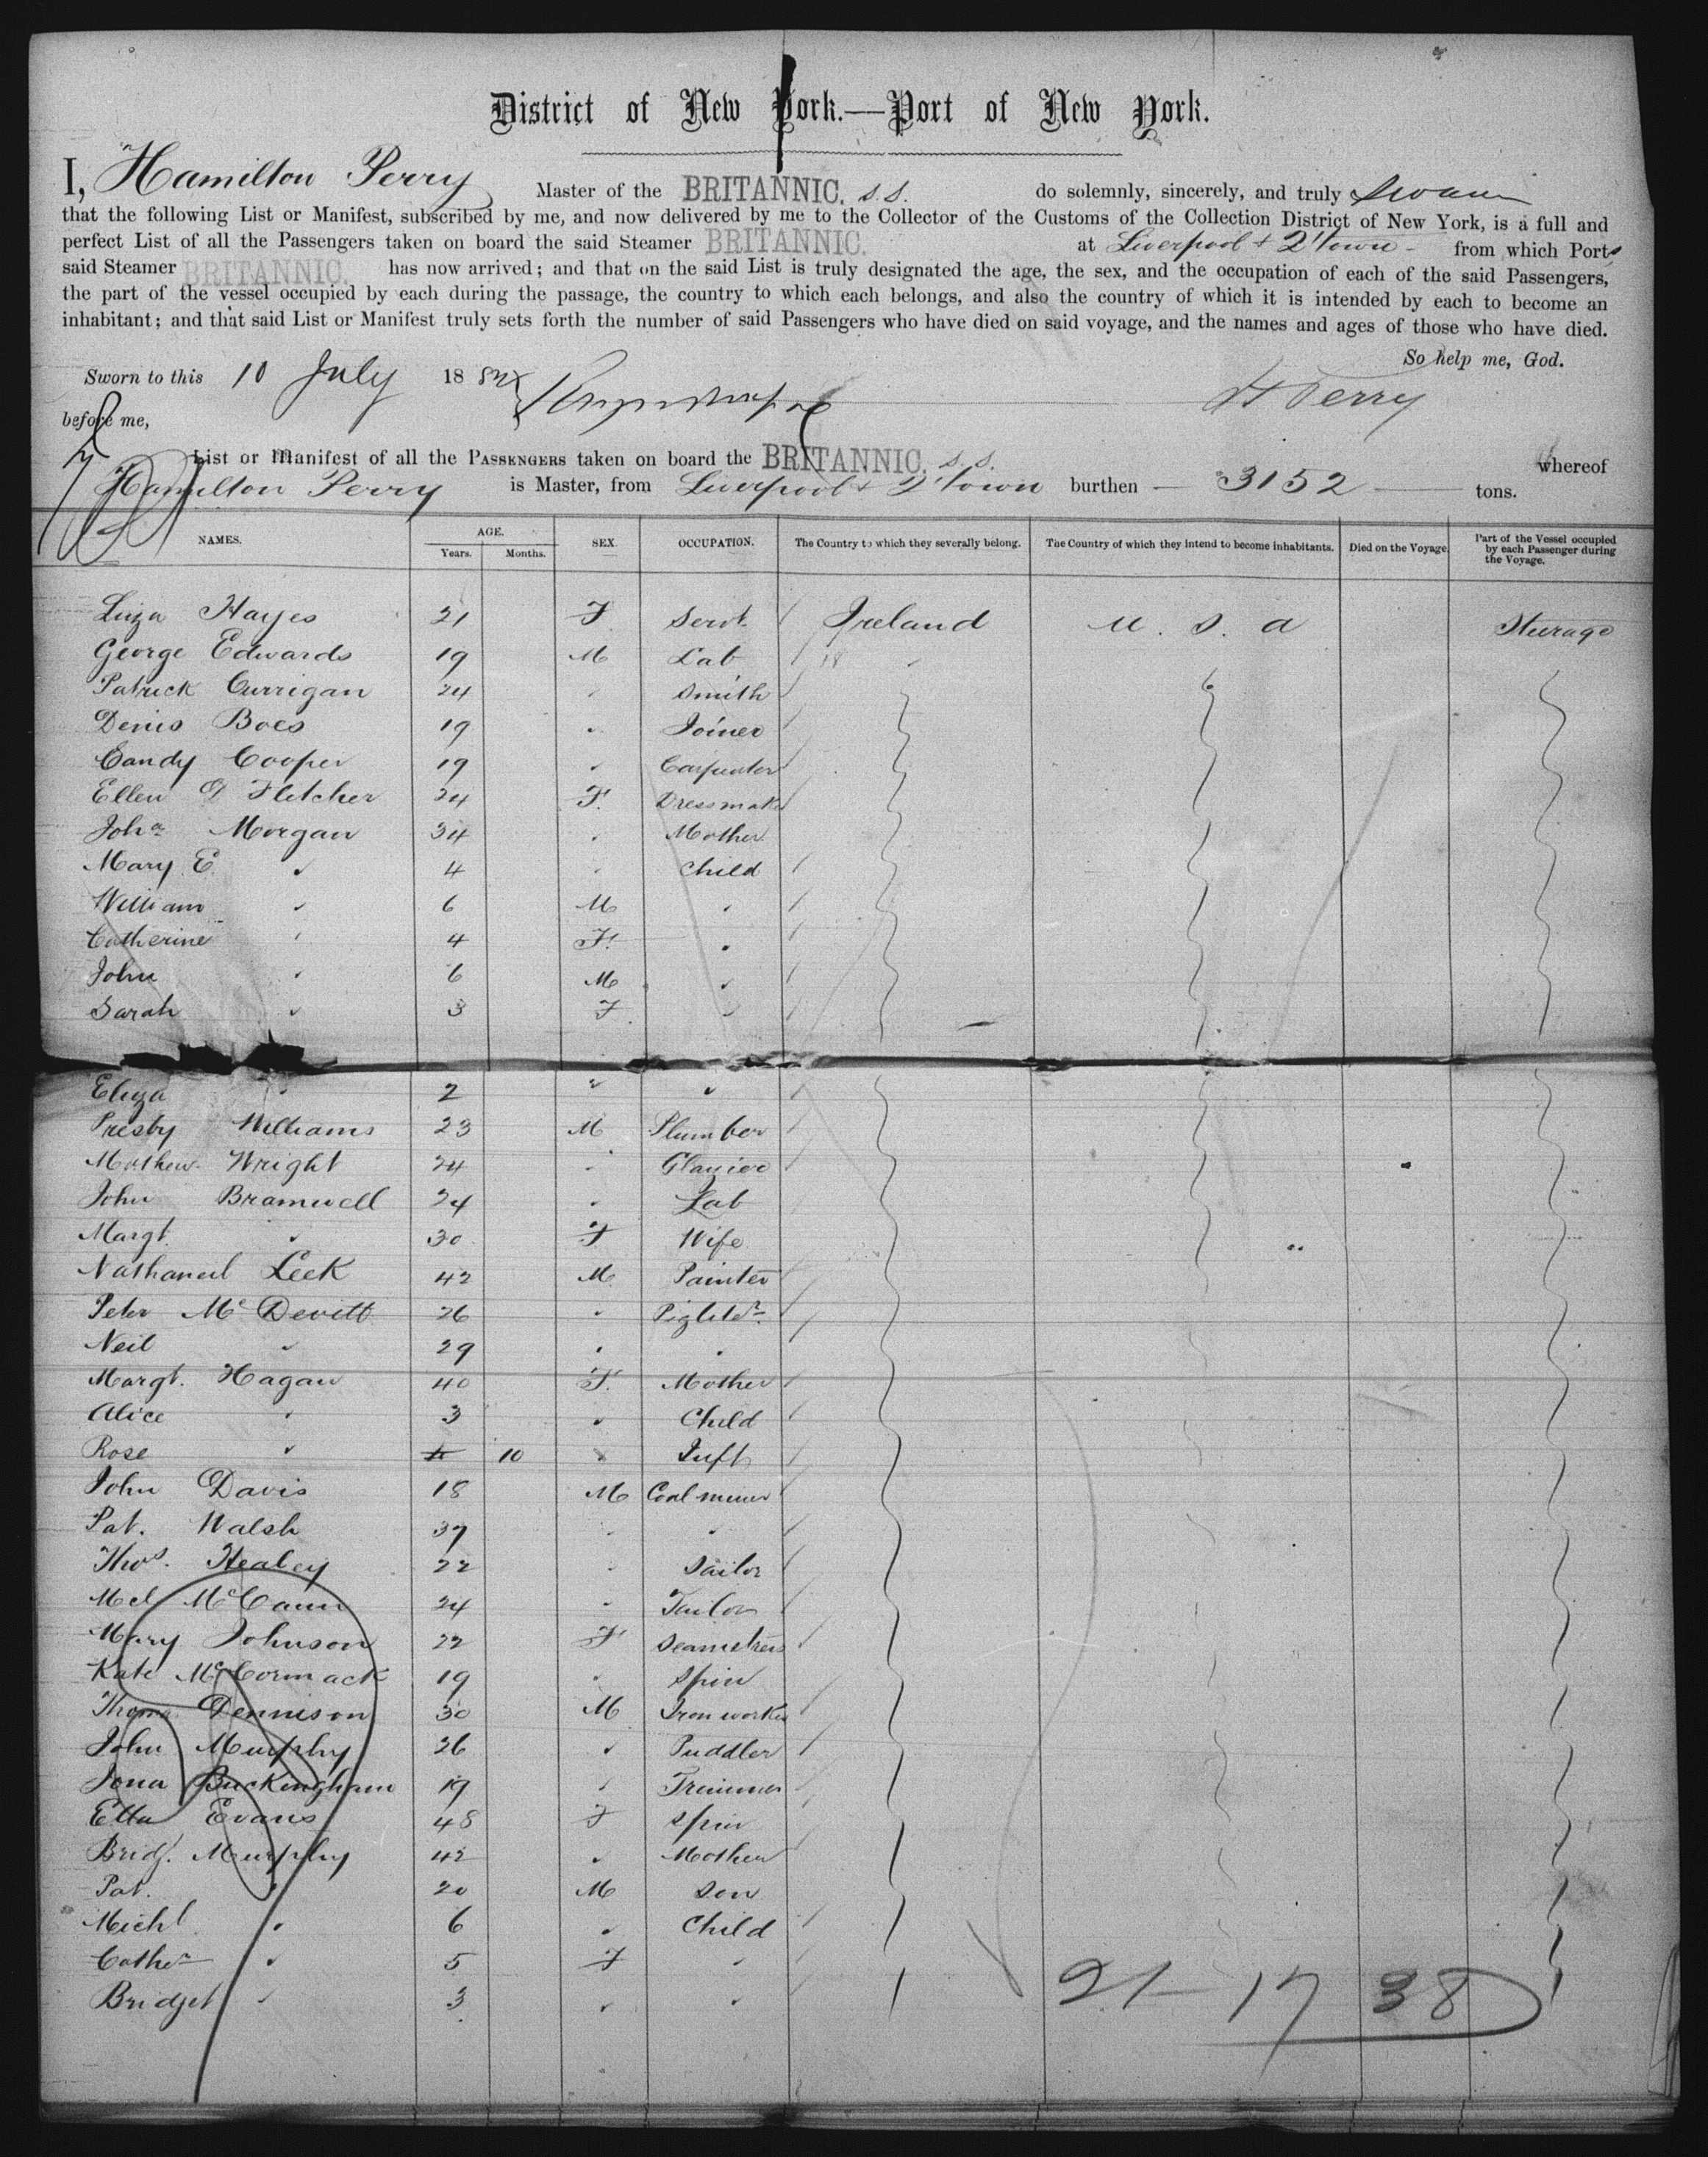 District of New York.—Port of New York.
I, Hamilton Perry Master of the BRITANNIC. S.S. do solemnly, sincerely, and truly swear
that the following List or Manifest, subscribed by me, and now delivered by me to the Collector of the Customs of the Collection District of New York, is a full and
perfect List of all the Passengers taken on board the said Steamer BRITANNIC. at Liverpool + Q'town from which Ports
said Steamer BRITANNIC. has now arrived; and that on the said List is truly designated the age, the sex, and the occupation of each of the said Passengers,
the part of the vessel occupied by each during the passage, the country to which each belongs, and also the country of which it is intended by each to become an
inhabitant; and that said List or Manifest truly sets forth the number of said Passengers who have died on said voyage, and the names and ages of those who have died.
So help me, God.
Sworn to this 10 July 188
H Perry
before me,
List or Manifest of all the PASSENGERS taken on board the BRITANNIC. S.S. whereof
Hamilton Perry is Master, from Liverpool + Q'town burthen — 3152 — tons.
NAMES. AGE. Years. Months. SEX. OCCUPATION. The Country to which they severally belong. The Country of which they intend to become inhabitants. Died on the Voyage. Part of the Vessel occupied by each Passenger during the Voyage.
Liza Hayes 21 F Servt. Ireland U. S. a Steerage
George Edwards 19 M Lab
Patrick Currigan 24 Smith
Denis Boes 19 Joiner
Candy Cooper 19 Carpenter
Ellen D Fletcher 24 F. Dressmak
Joha Morgan 34 Mother
Mary E 4 Child
William 6 M
Catherine 4 F.
John 6 M
Sarah 3 F
Eliza 2
Presby Williams 23 M Plumber
Mathew Wright 24 Glazier
John Bramwell 24 Lab
Margt. 30 F Wife
Nathaneul Leek 42 M. Painter
Peter McDevitt 26
Neil 29
Margt. Hagan 40 F. Mother
Alice 3 Child
Rose 10 Inft
John Davis 18 M Coal miner
Pat. Walsh 37
Thos. Healey 22 Sailor
Mcl McCann 24 Tailor
Mary Johnson 22 F Seamstress
Kate McCormack 19 Spin
Thomas Dennison 30 M Iron worker
John Murphy 26 Puddler
Jona Buckingham 19 Trimmer
Etta Evans 48 F Spin
Bridj. Murphy 42 Mother
Pat. 20 M Son
Michl 6 Child
Cathen 5 F
Bridget 3
21 — 17 38